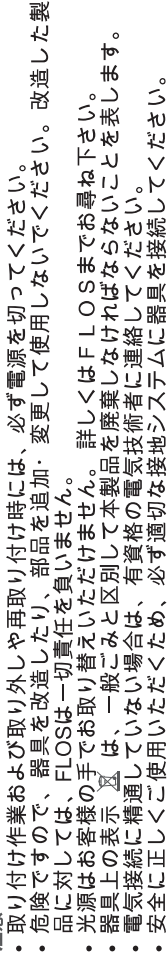 ・取り付け作業および取り外しや再取り付け時には、必ず電源を切ってください。
・危険ですので、器具を改造したり、部品を追加・変更して使用しないでください。改造した製
品に対しては、FLOSは一切責任を負いません。
・光源はお客様の手でお取り替えいただけません。詳しくはＦＬＯＳまでお尋ね下さい。
・器具上の表示 は、一般ごみと区別して本製品を廃棄しなければならないことを表します。
・電気接続に精通していない場合は、有資格の電気技術者に連絡してください。
・安全に正しくご使用いただくため、必ず適切な接地システムに器具を接続してください。